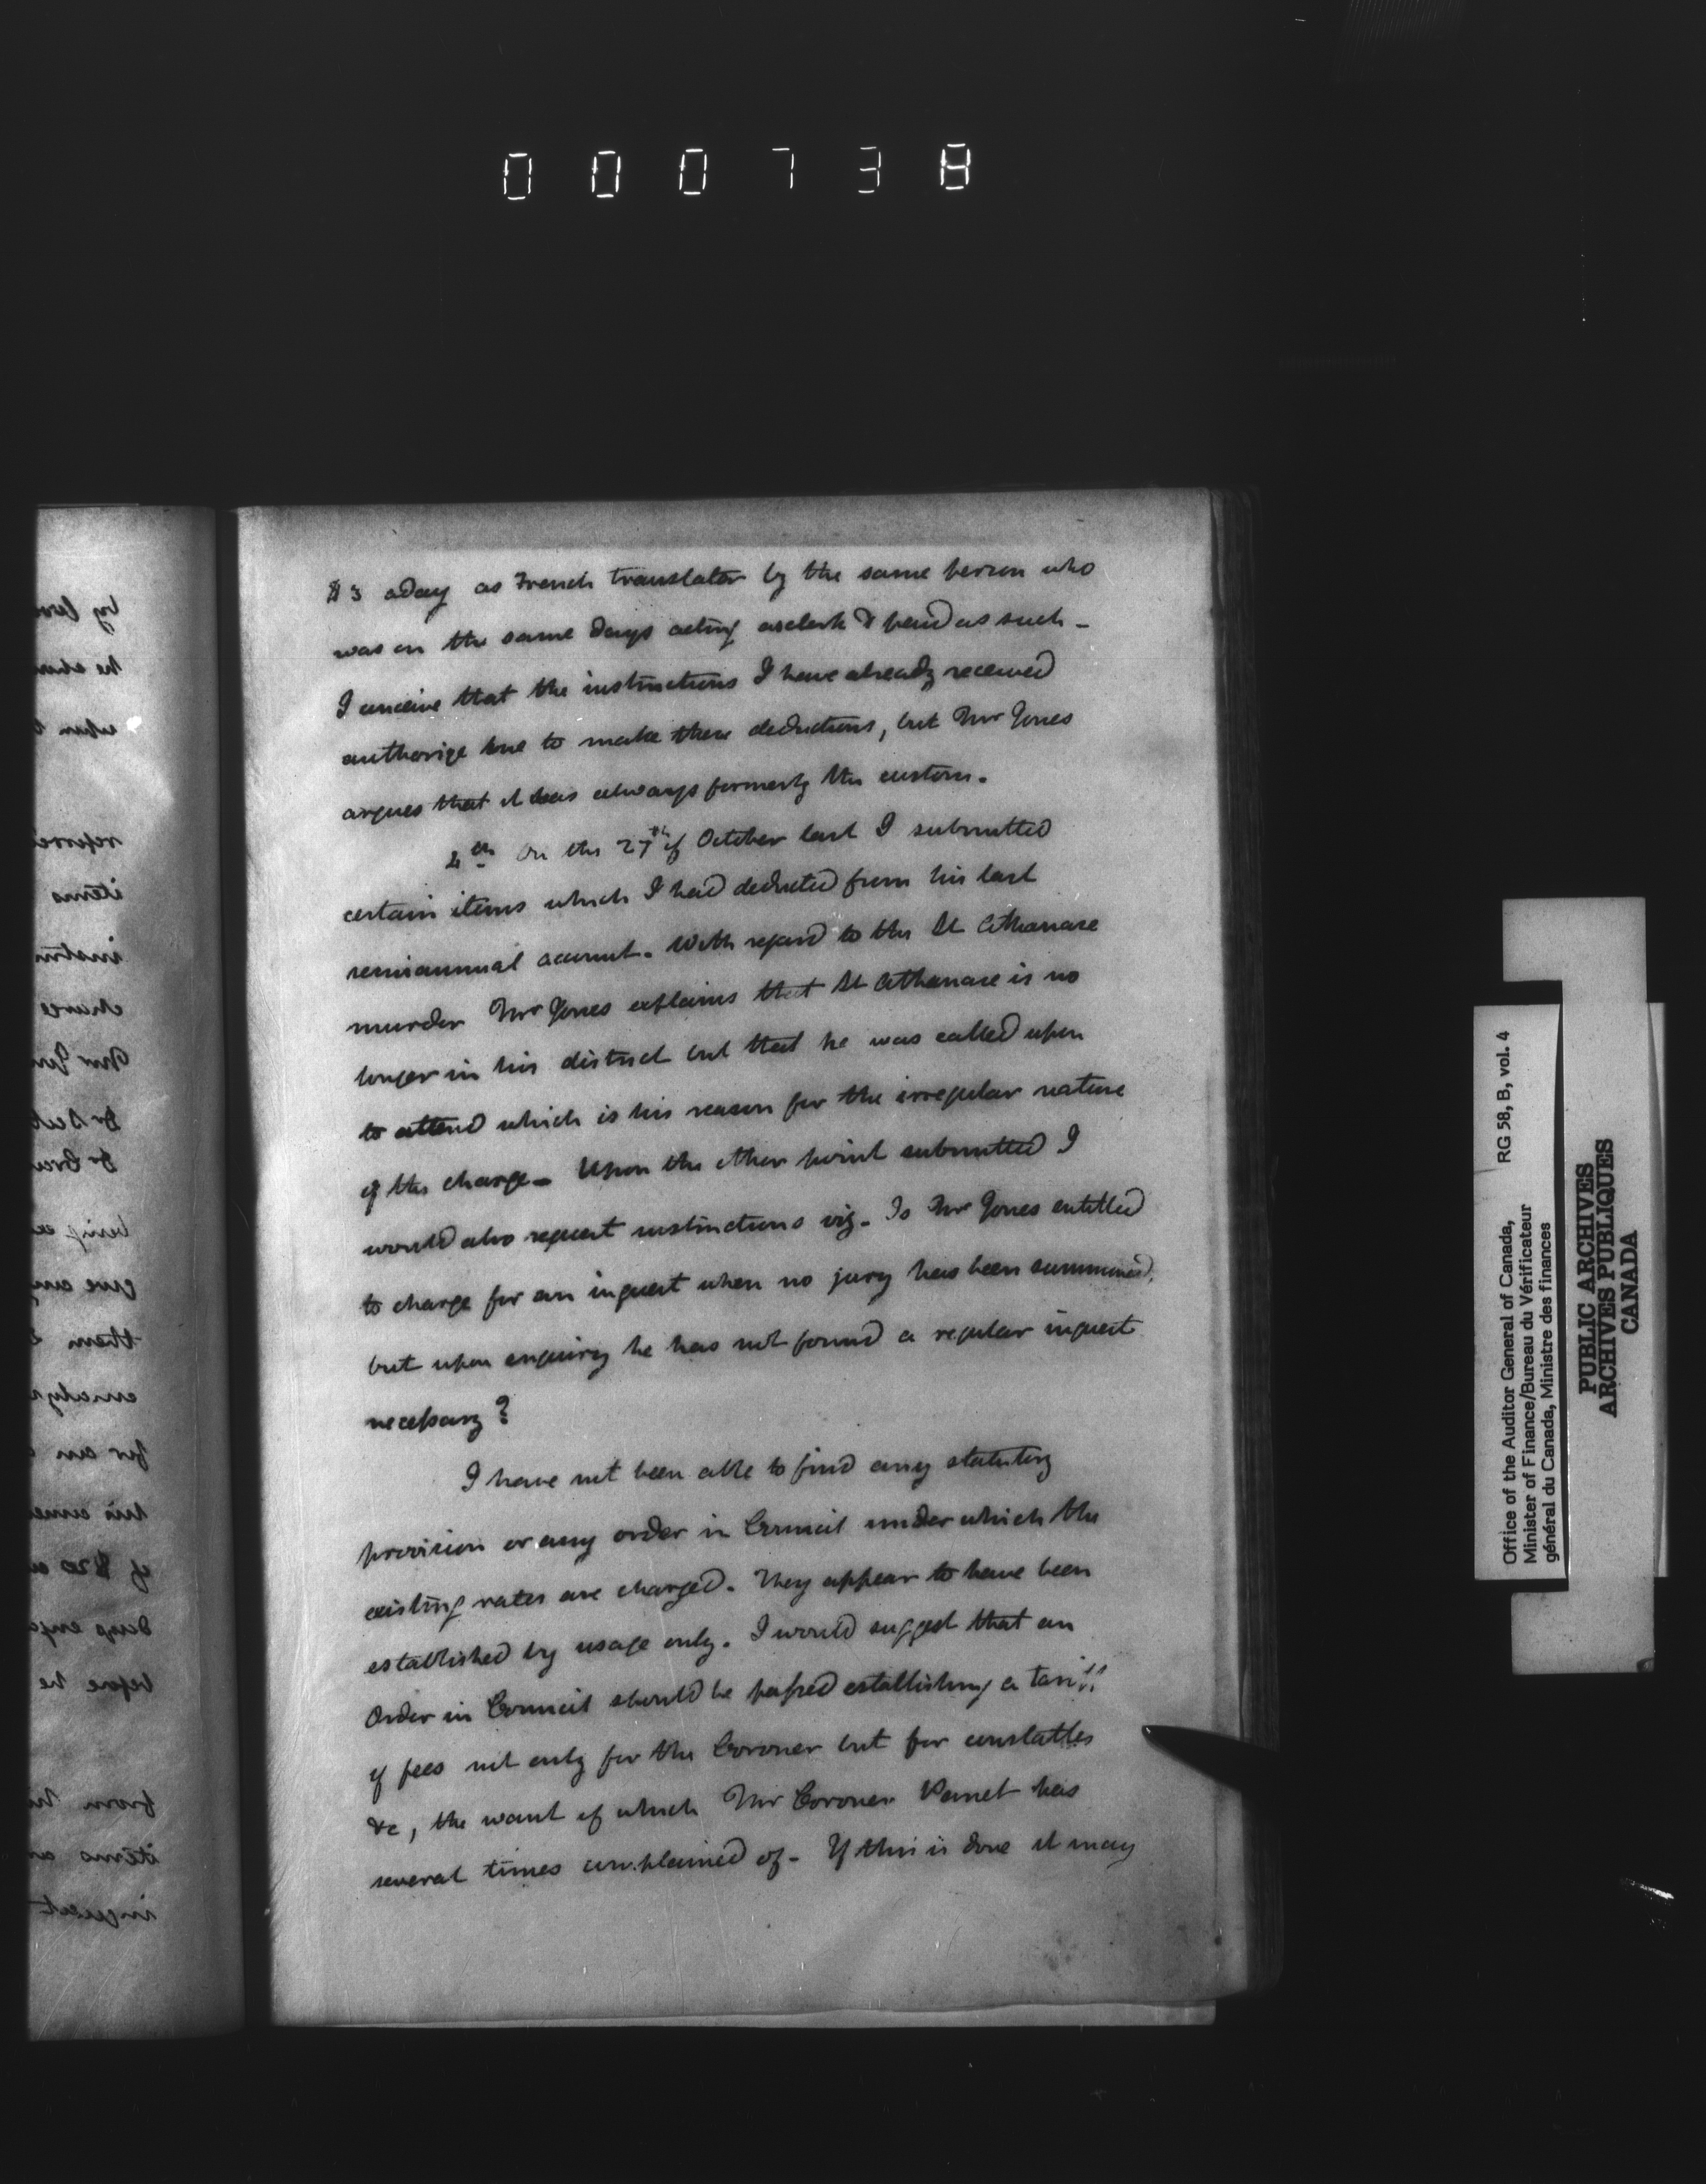 000738
$3 a day as French translator by the same person who
was on the same days acting as clerk & paid as such -
I conceive that the instructions I have already received
authorize me to make these deductions, but Mr Jones
argues that it was always formerly the custom.
4th On the 27th of October last I submitted
certain items which I had deducted from his last
semiannual account. With regard to the St Athanase
murder Mr Jones explains that St Athanase is no
longer in his district but that he was called upon
to attend which is his reason for the irregular nature
of the charge - Upon the other point submitted I
would also request instructions viz - Is Mr Jones entitled
to charge for an inquest when no jury has been summoned,
but upon enquiry he has not found a regular inquest
necessary?
I have not been able to find any statutory
provision or any order in Council under which the
existing rates are charged. They appear to have been
established by usage only. I would suggest that an
Order in Council should be passed establishing a tariff
of fees not only for the Coroner but for constables
&c, the want of which Mr Coroner Panet has
several times complained of - If this is done it may
Office of the Auditor General of Canada, RG 58, B, vol. 4
Minister of Finance/Bureau du Vérificateur
général du Canada, Ministre des finances
PUBLIC ARCHIVES
ARCHIVES PUBLIQUES
CANADA